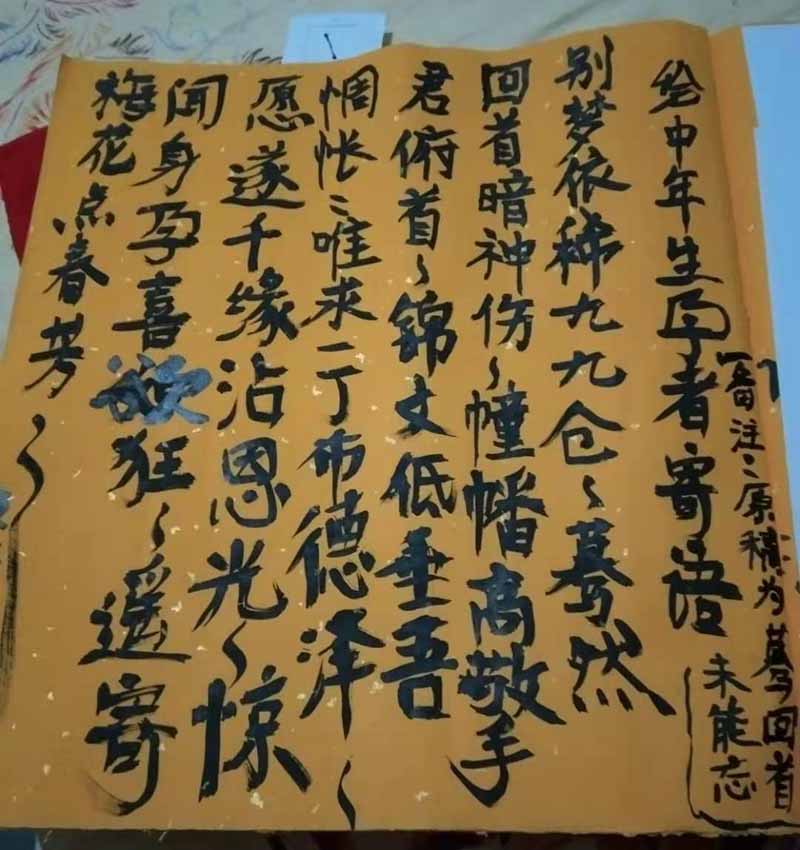 备注:原稿为蓦回首
未能忘
给中年生孕者寄语
别梦依稀九九仓、蓦然
回首暗神伤、幢幡高敬手
君俯首、锦文低垂吾
惆怅:唯求一丁布德泽、
愿遂千缘沾恩光、惊
闻身孕喜欲狂、遥寄
梅花点春芳、